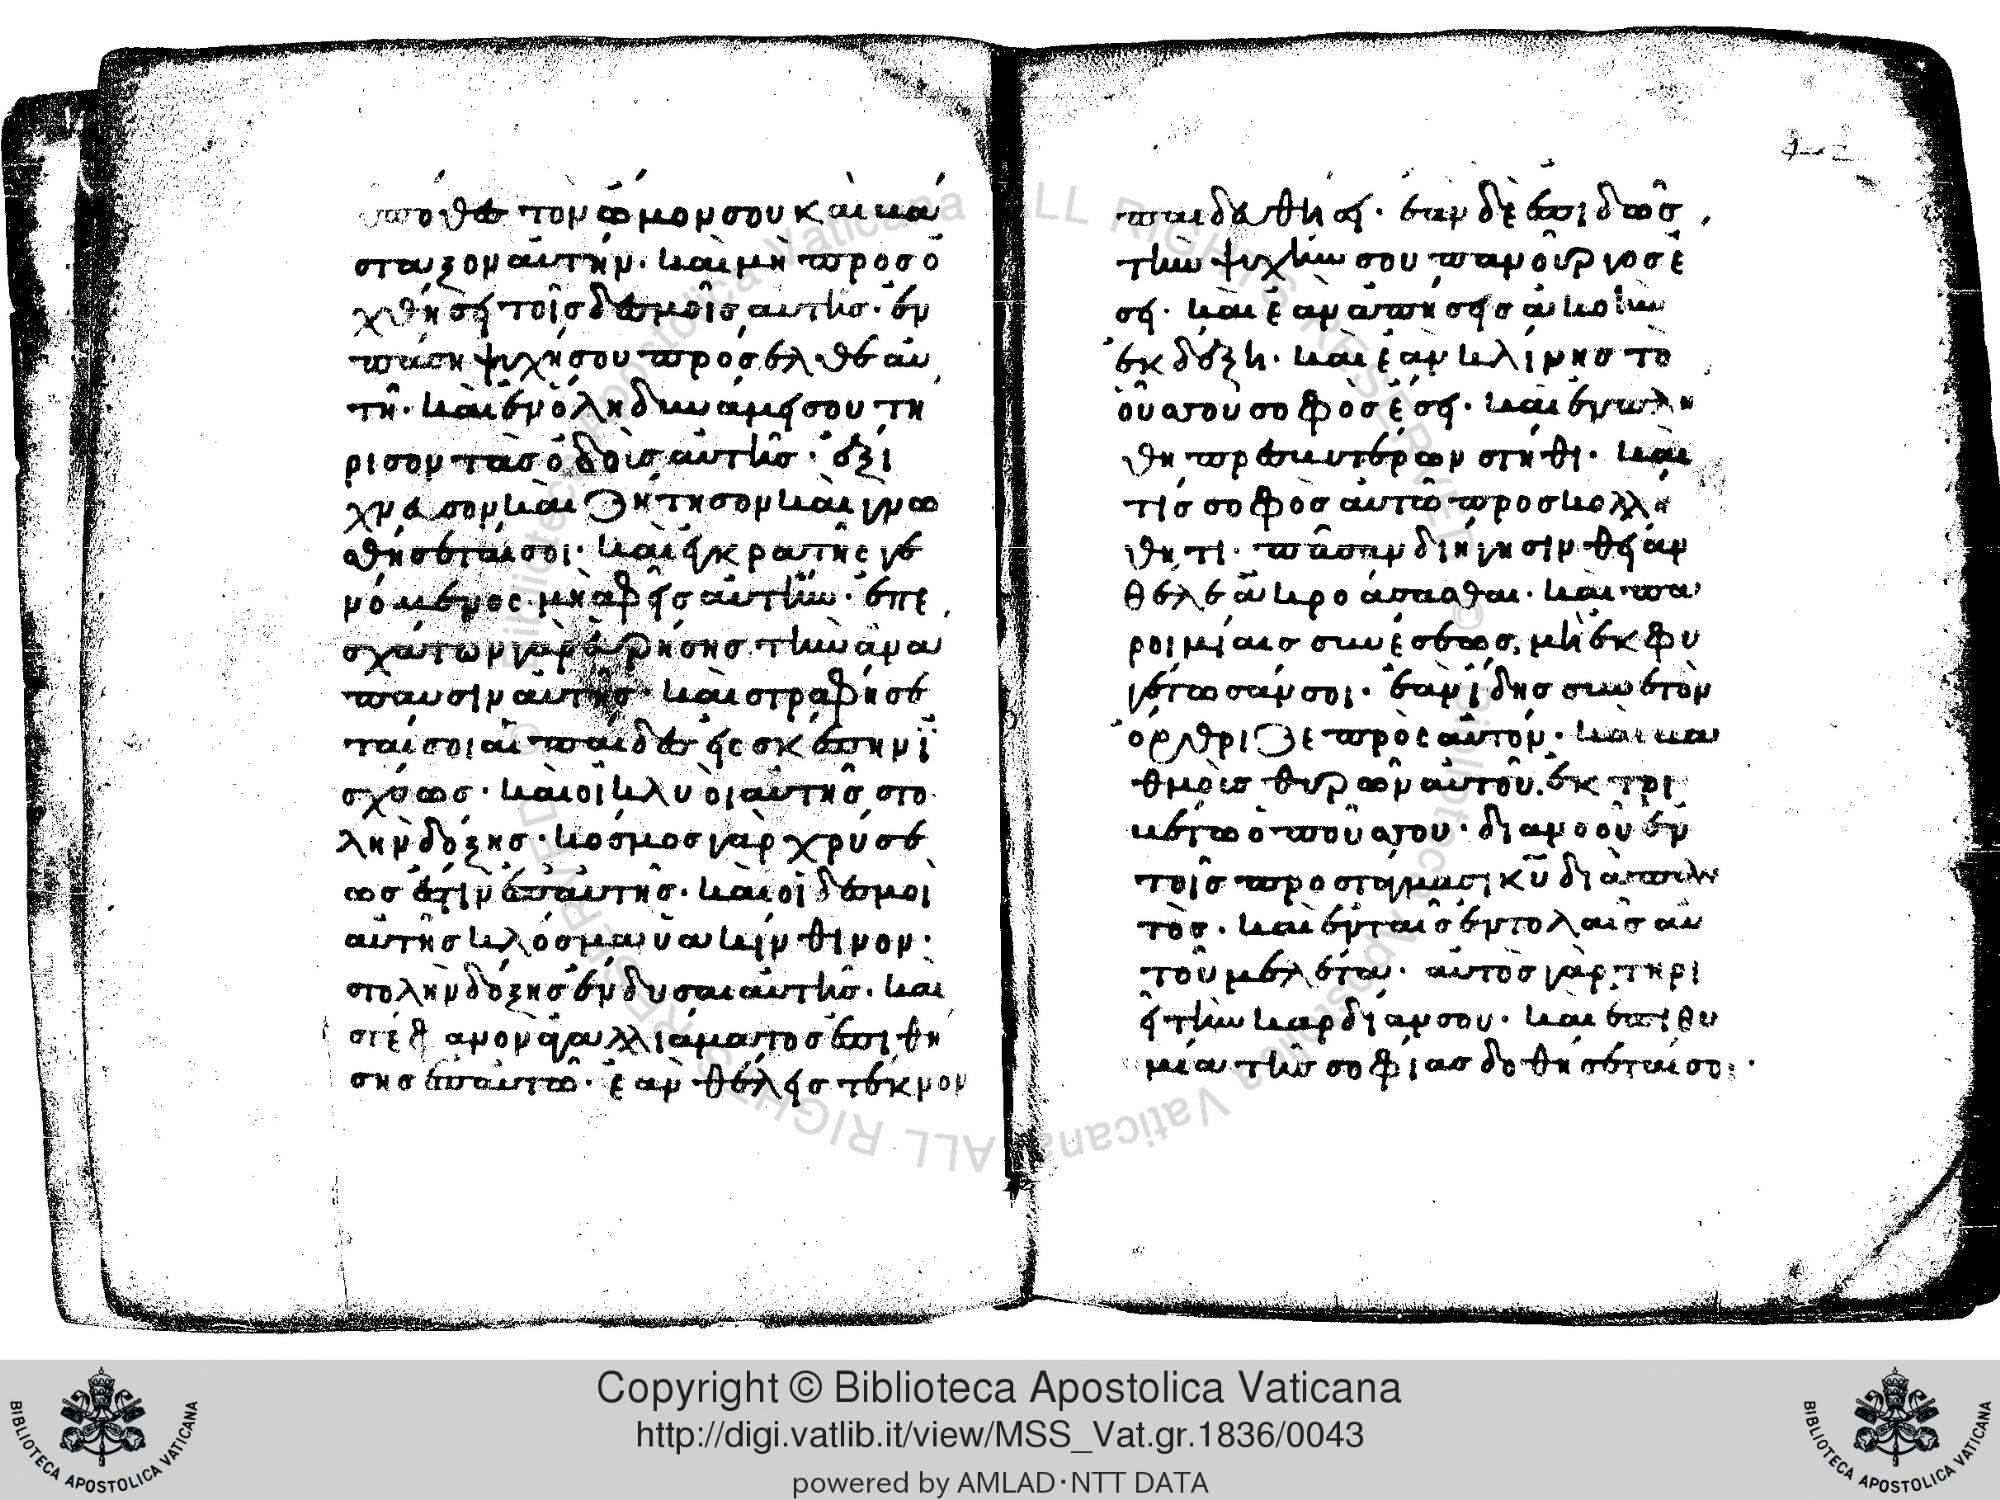 ὑπόθες τὸν ὦμόν σου καὶ βά
σταξον αὐτήν· καὶ μὴ προσο
χθήσῃ τοῖς δεσμοῖς αὐτῆς· ἐν
πάσῃ ψυχῇ σου πρόσελθε αὐ
τῇ· καὶ ἐν ὅλῃ δυνάμει σου τή
ρισον τὰς ὁδοὺς αὐτῆς· ἐξί
χνευσον καὶ ζήτησον καὶ γνω
σθήσεταί σοι· καὶ ἐγκρατὴς γε
νόμενος μὴ ἀφῇς αὐτήν· ἐπ ἐ
σχάτων γὰρ εὑρήσης τὴν ἀνά
παυσιν αὐτῆς· καὶ στραφήσε
ταί σοι αἱ παίδες εἰς σκέπην ἰ
σχύος· καὶ οἱ κλυοὶ αὐτῆς στο
λὴν δόξης· κόσμος γὰρ χρύσε
ος ἐστὶν ἐπ αὐτῆς· καὶ οἱ δεσμοὶ
αὐτῆς κλόσμα ὑακίνθινον·
στολὴν δόξης ἐνδύσαι αὐτῆς· καὶ
στέφανον ἀγαλλιάματος ἐπιθή
σης ἐπ αὐτῶ· ἐὰν θέλεις τέκνον
παιδευθήσῃ· ἐὰν δὲ ἐπιδῶς
τὴν ψυχήν σου πανοῦργος ἔ
σῃ· καὶ ἐὰν ἀγαπήσῃς ἀκούειν
ἐκδέξῃ· καὶ ἐὰν κλίνῃς τὸ
οὖς σου σοφὸς ἔσῃ· καὶ ἐν πλή
θη πρεσβυτέρων στῆθι· καὶ
τίς σοφὸς αὐτῶ προσκολλή
θητι· πᾶσαν διήγησιν θείαν
θέλε ἀκροάσασθαι· καὶ πα
ροιμίαις συνέσεως μὴ ἐκφυ
γέτωσάν σοι· ἐὰν ἴδῃς συνετὸν
ὄρθριζε πρὸς αὐτόν· καὶ βα
θμοὺς θυρῶν αὐτοῦ ἐκτρι
βέτω ὁ ποῦς σου· διανοοῦ ἐν
τοῖς προστάγμασι κυ διὰ παν
τὸς· καὶ ἐν ταῖς ἐντολαῖς αὐ
τοῦ μελέτα· αὐτὸς γὰρ τηρι
εῖ τὴν καρδίαν σου· καὶ ἐπιθυ
μία τῆς σοφίας δοθήσεταί σοι·
Copyright © Biblioteca Apostolica Vaticana
http://digi.vatlib.it/view/MSS_Vat.gr.1836/0043
powered by AMLAD·NTT DATA
BIBLIOTECA APOSTOLICA VATICANA
BIBLIOTECA APOSTOLICA VATICANA